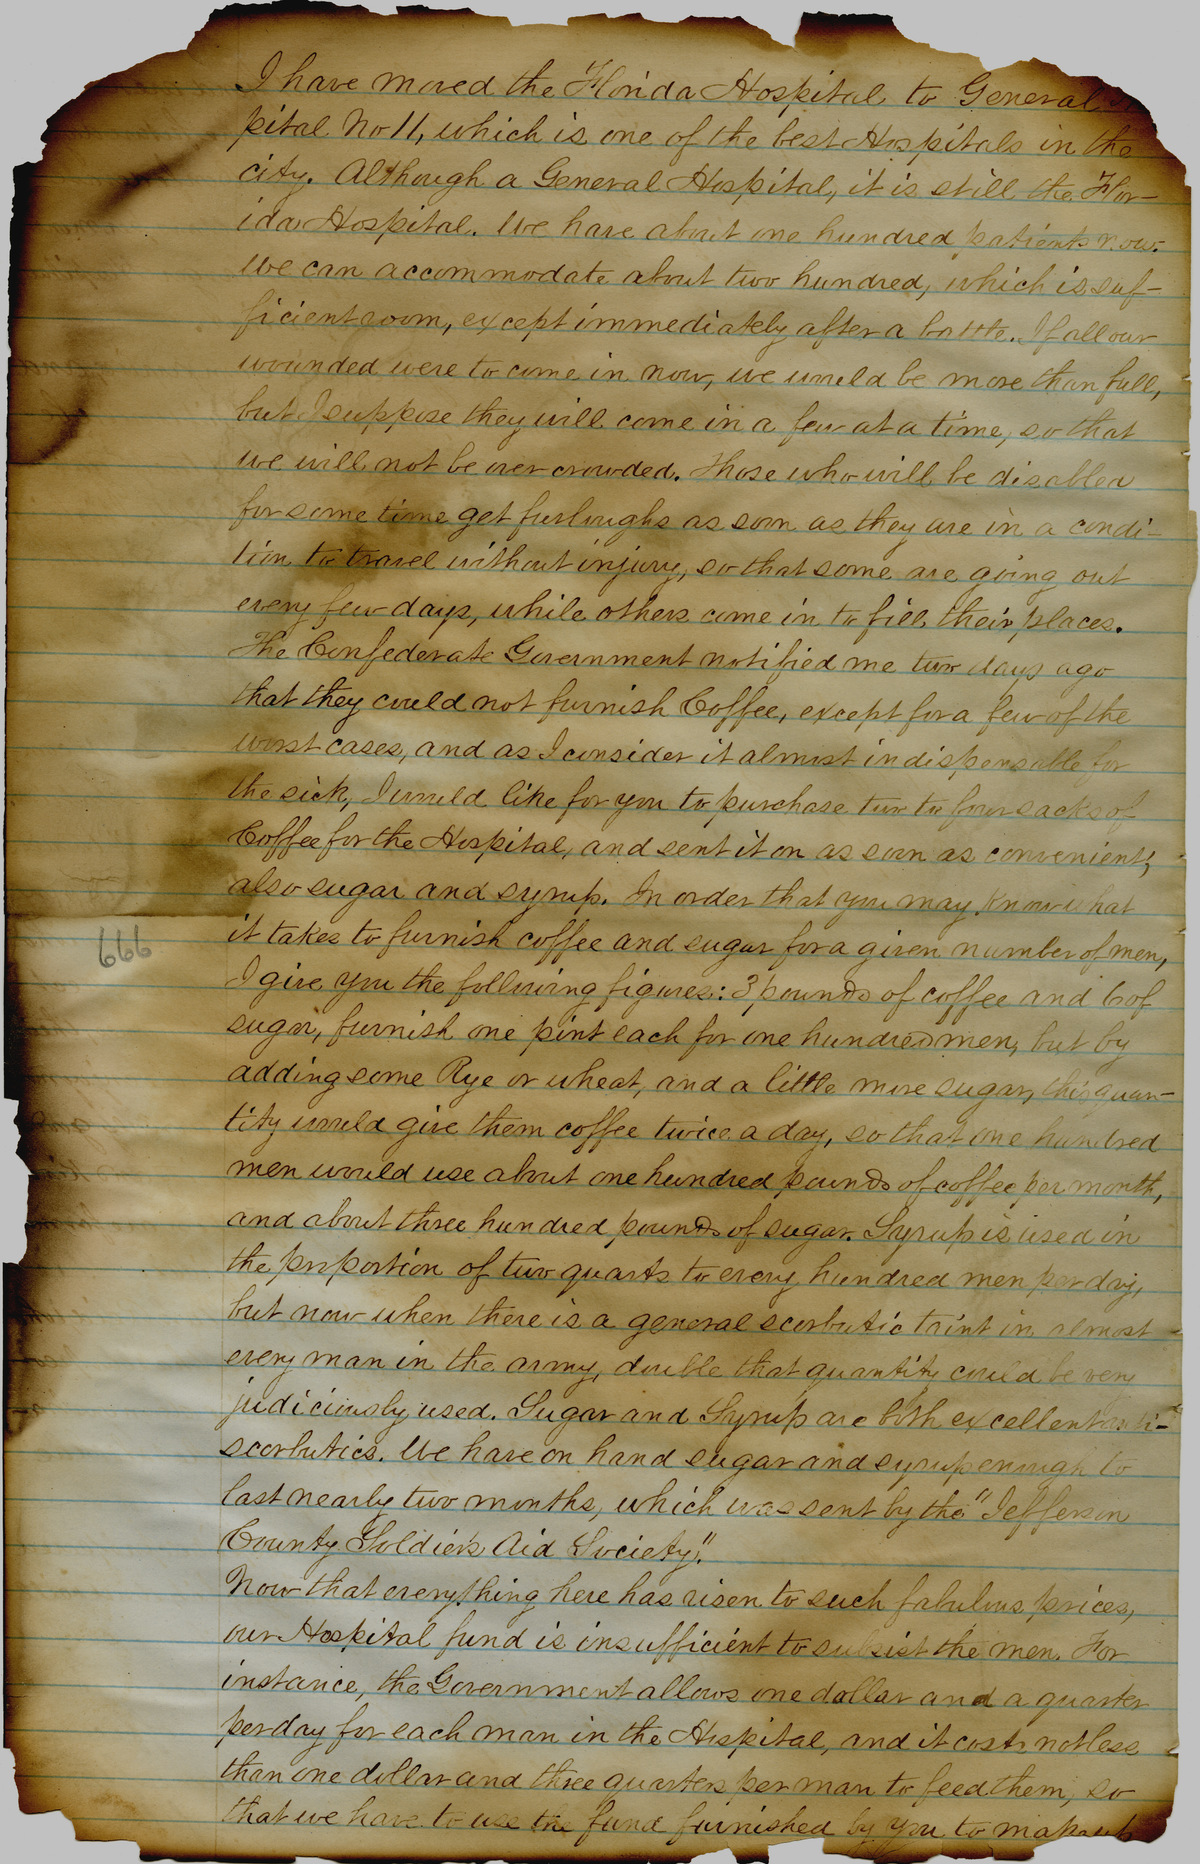 I have moved the Florida Hospital to General
pital No 11, which is one of the best Hospitals in the
city. Although a General Hospital, it is still the Flor-
ida Hospital. We have about one hundred patients now.
We can accommodate about two hundred, which is suf-
ficient room, except immediately after a battle. If all our
wounded were to come in now, we would be more than full,
but I suppose they will come in a few at a time, so that
we will not be over crowded. Those who will be disabled
for some time get furloughs as soon as they are in a condi-
tion to travel without injury, so that some are going out
every few days, while others come in to fill their places.
The Confederate Government notified me two days ago
that they could not furnish Coffee, except for a few of the
worst cases, and as I consider it almost indispensable for
the sick, I would like for you to purchase two to four sacks of
Coffee for the Hospital, and sent it on as soon as convenient;
also sugar and syrup. In order that you may know what
it takes to furnish coffee and sugar for a given number of men,
666
I give you the following figures: 3 pounds of coffee and 6 of
sugar, furnish one pint each for one hundred men, but by
adding some Rye or wheat, and a little more sugar, this quan-
tity would give them coffee twice a day, so that one hundred
men would use about one hundred pounds of coffee per month,
and about three hundred pounds of sugar. Syrup is used in
the proportion of two quarts to every hundred men per day,
but now when there is a general scorbutic taint in almost
every man in the army, double that quantity could be very
judiciously used. Sugar and Syrup are both excellent anti-
scorbutics. We have on hand sugar and syrup enough to
last nearly two months, which was sent by the "Jefferson
County Soldier's Aid Society."
Now that everything here has risen to such fabulous prices,
our Hospital fund is insufficient to subsist the men. For
instance, the Government allows one dollar and a quarter
per day for each man in the Hospital, and it costs not less
than one dollar and three quarters per man to feed them, so
that we have to use the fund furnished by you to make up